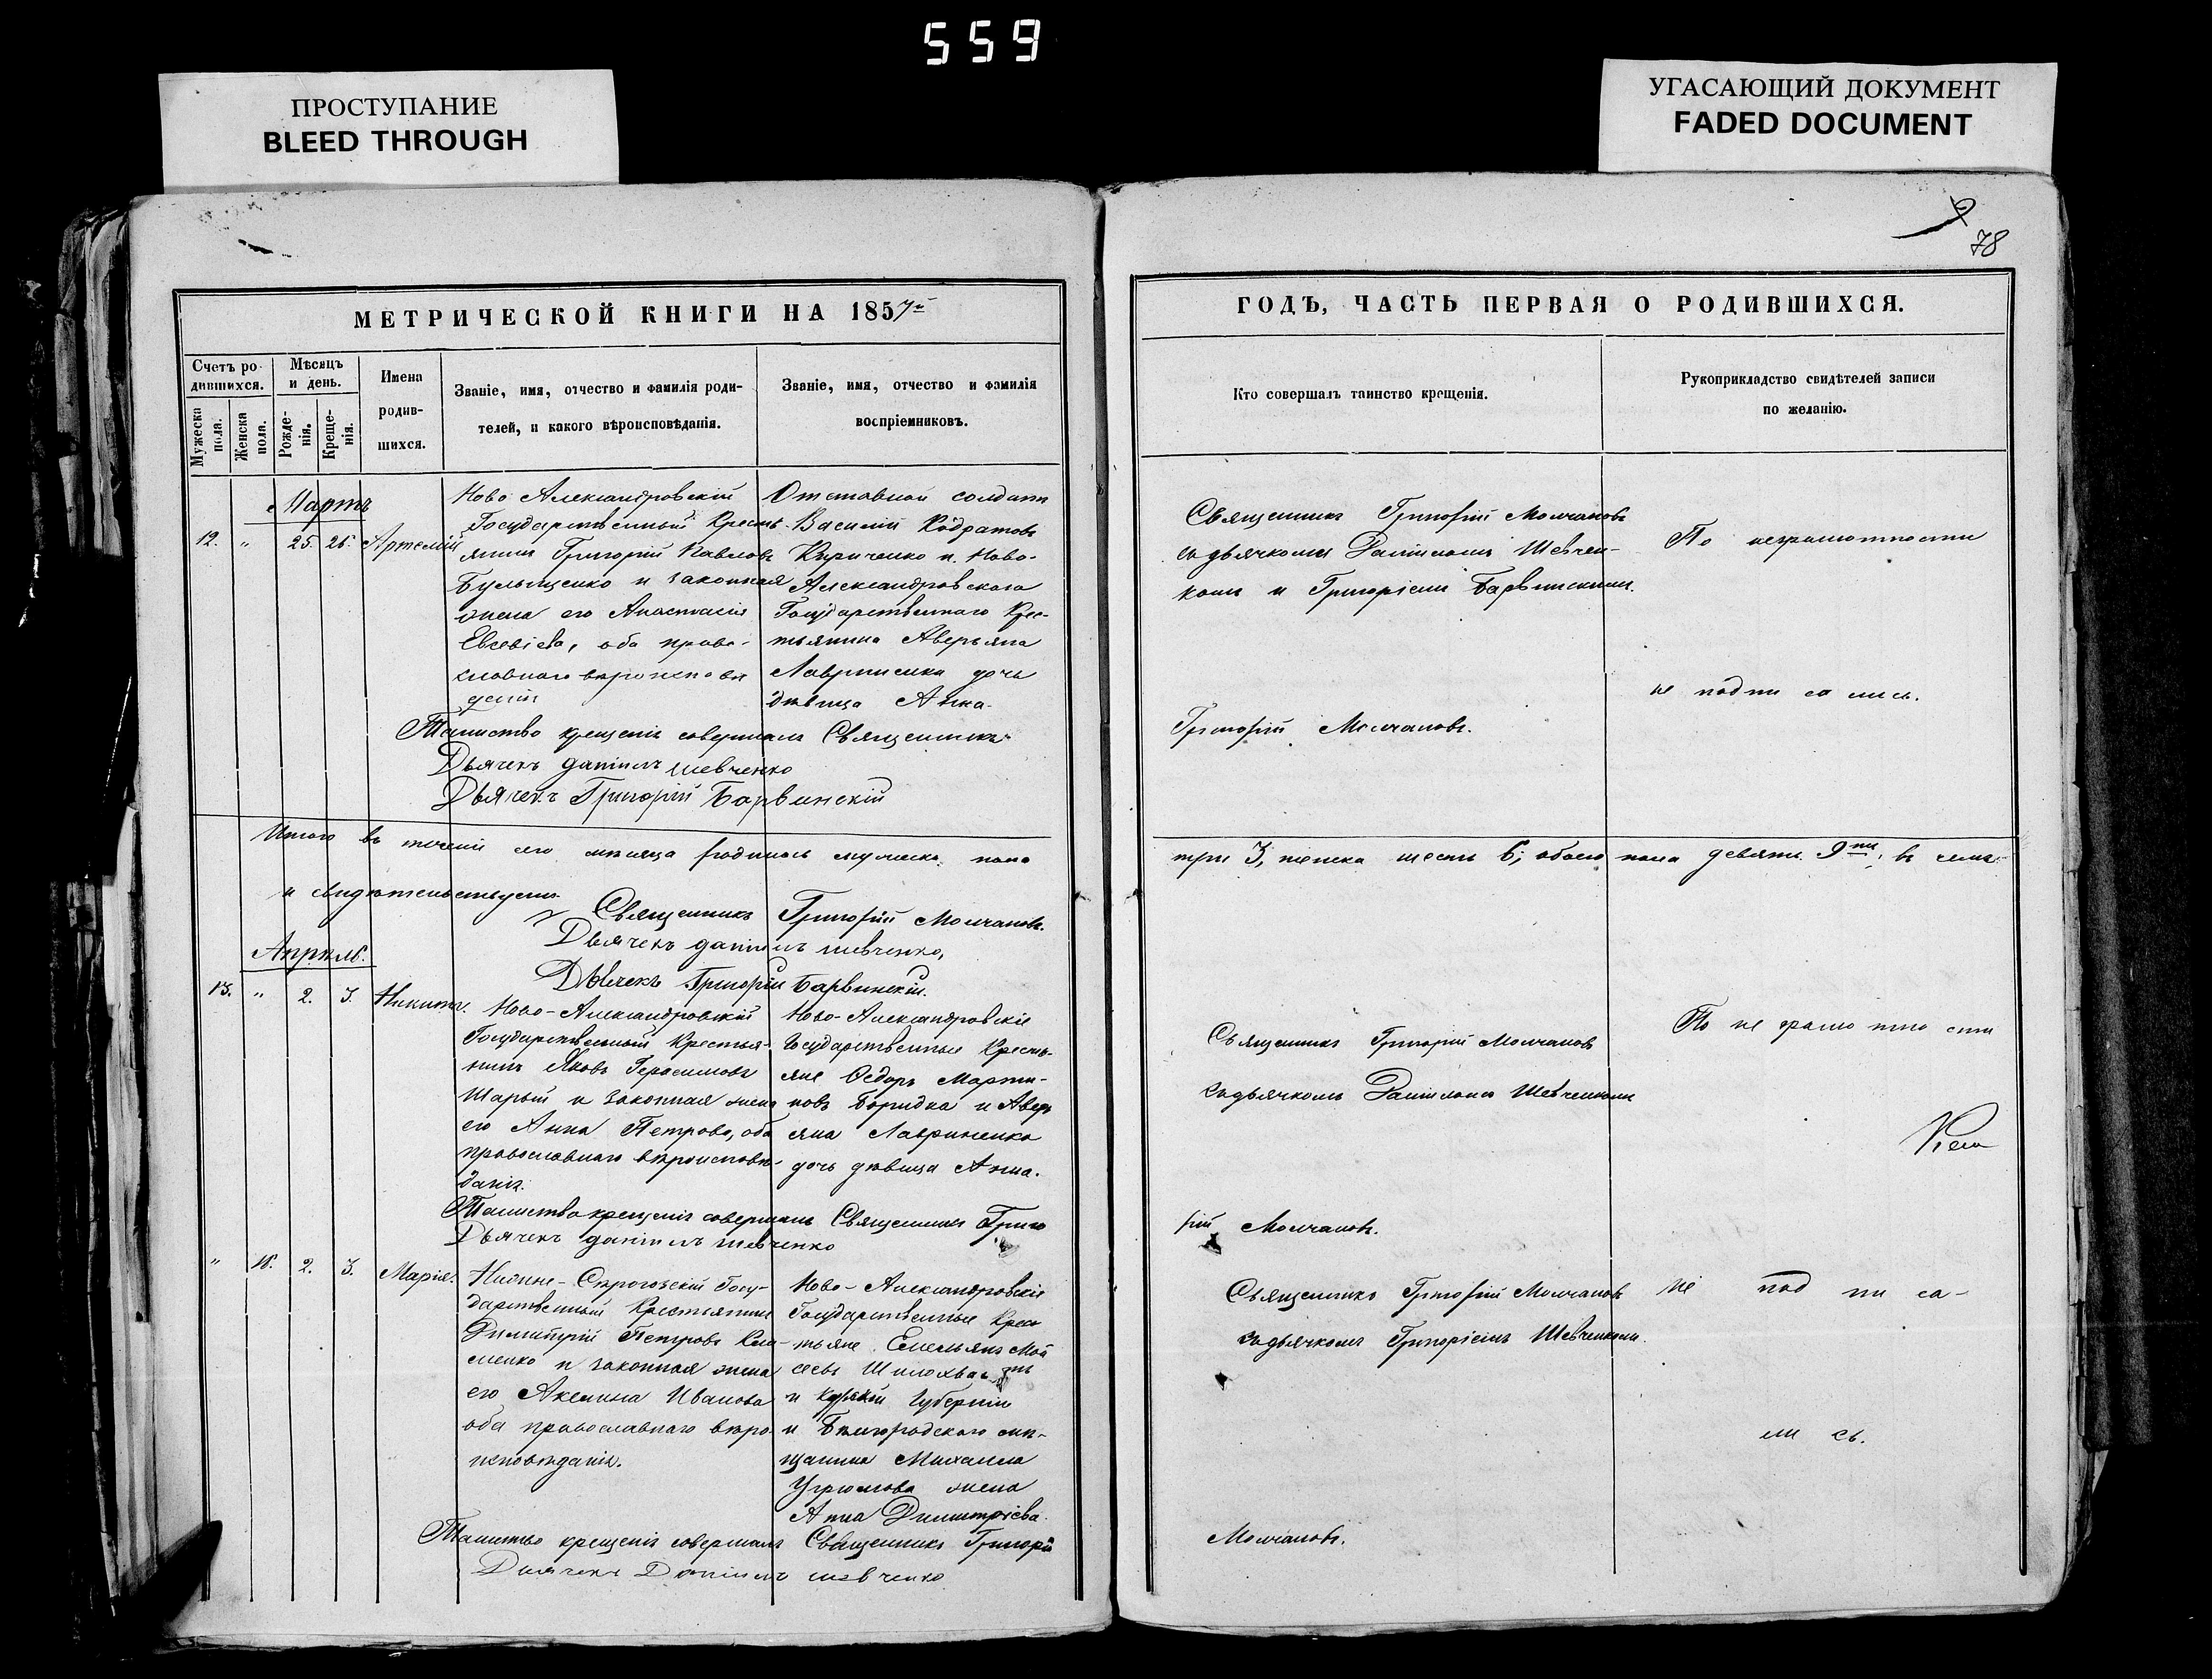 559
ПРОСТУПАНИЕ
BLEED THROUGH
УГАСАЮЩИЙ ДОКУМЕНТ
FADED DOCUMENT
78
МЕТРИЧЕСКОЙ КНИГИ НА 1857й
Счетъ ро-
дившихся.
Мужеска пола.
Женска пола.
Мѣсяцъ
и день.
Рожде-
нія.
Креще-
нія.
Имена
родив-
шихся.
Званіе, имя, отчество и фамилія роди-
телей, и какого вѣроисповѣданія.
Званіе, имя, отчество и фамилія
воспріемниковъ.
Мартъ
12. " 25. 26. Артемій
Ново Александровскій
Государственный Кресть-
янинъ Григорій Павловъ
и законная
жена его Анастасія
Евсевіева, оба право-
славнаго вѣроисповѣ
данія
Отставной солдатъ
Василій
Кириченко и Ново-
Александровскаго
Государственнаго Крес-
тьянина Аверьяна
Лавриненка дочь
дѣвица Анна.
Таинство крещенія совершалъ Священникъ
Дьячекъ Даніилъ Шевченко
Дьячекъ Григорій Барвинскій
Итого въ теченіи сего мѣсяца родилось мужеска пола
и свидѣтельствуемъ
Священникъ Григорій Молчановъ.
Дьячекъ Даніилъ Шевченко,
Дьячекъ Григорій Барвинскій.
Апрѣль.
13. " 2. 3. Никита.
Ново-Александровскій
Государственный Крестья-
нинъ Яковъ Герасимовъ
Шарый и законная жена
его Анна Петрова, оба
православнаго вѣроисповѣ-
данія.
Ново-Александровскіе
Государственные Кресть-
яне Ѳедоръ Марти-
новъ и Авер
яна Лавриненка
дочь дѣвица Анна.
Таинство крещенія совершалъ Священникъ Григо
Дьячекъ Даніилъ Шевченко
" 2. 3. Марія.
Государственный Крестьянинъ
Димитрій Петровъ Кли-
менко и законная жена
его Акилина Иванова
оба православнаго вѣро
исповѣданія.
Ново-Александровскіе
Государственные Крес
тьяне Емельянъ Мой
сеевъ
и Курской Губерніи
и Бѣлгородскаго мѣ-
щанина Михаила
Угрюмова жена
Анна Димитріева.
Таинство крещенія совершалъ Священникъ Григорій
Дьячекъ Даніилъ Шевченко
ГОДЪ, ЧАСТЬ ПЕРВАЯ О РОДИВШИХСЯ.
Кто совершалъ таинство крещенія.
Рукоприкладство свидѣтелей записи
по желанію.
Священникъ Григорій Молчановъ
съ дьячкомъ Даніиломъ Шевчен-
комъ и Григоріемъ Барвинскимъ.
По неграмотности
не подписались.
Григорій Молчановъ.
три 3, женска шесть 6; обоего пола девять 9ть, въ чемъ
Священникъ Григорій Молчановъ
съ дьячкомъ Даніиломъ Шевченкомъ
По не грамо тно сти
рій Молчановъ.
Священникъ Григорій Молчановъ
съ дьячкомъ Григоріемъ Шевченкомъ.
не под пи са-
ли сь.
Молчановъ.